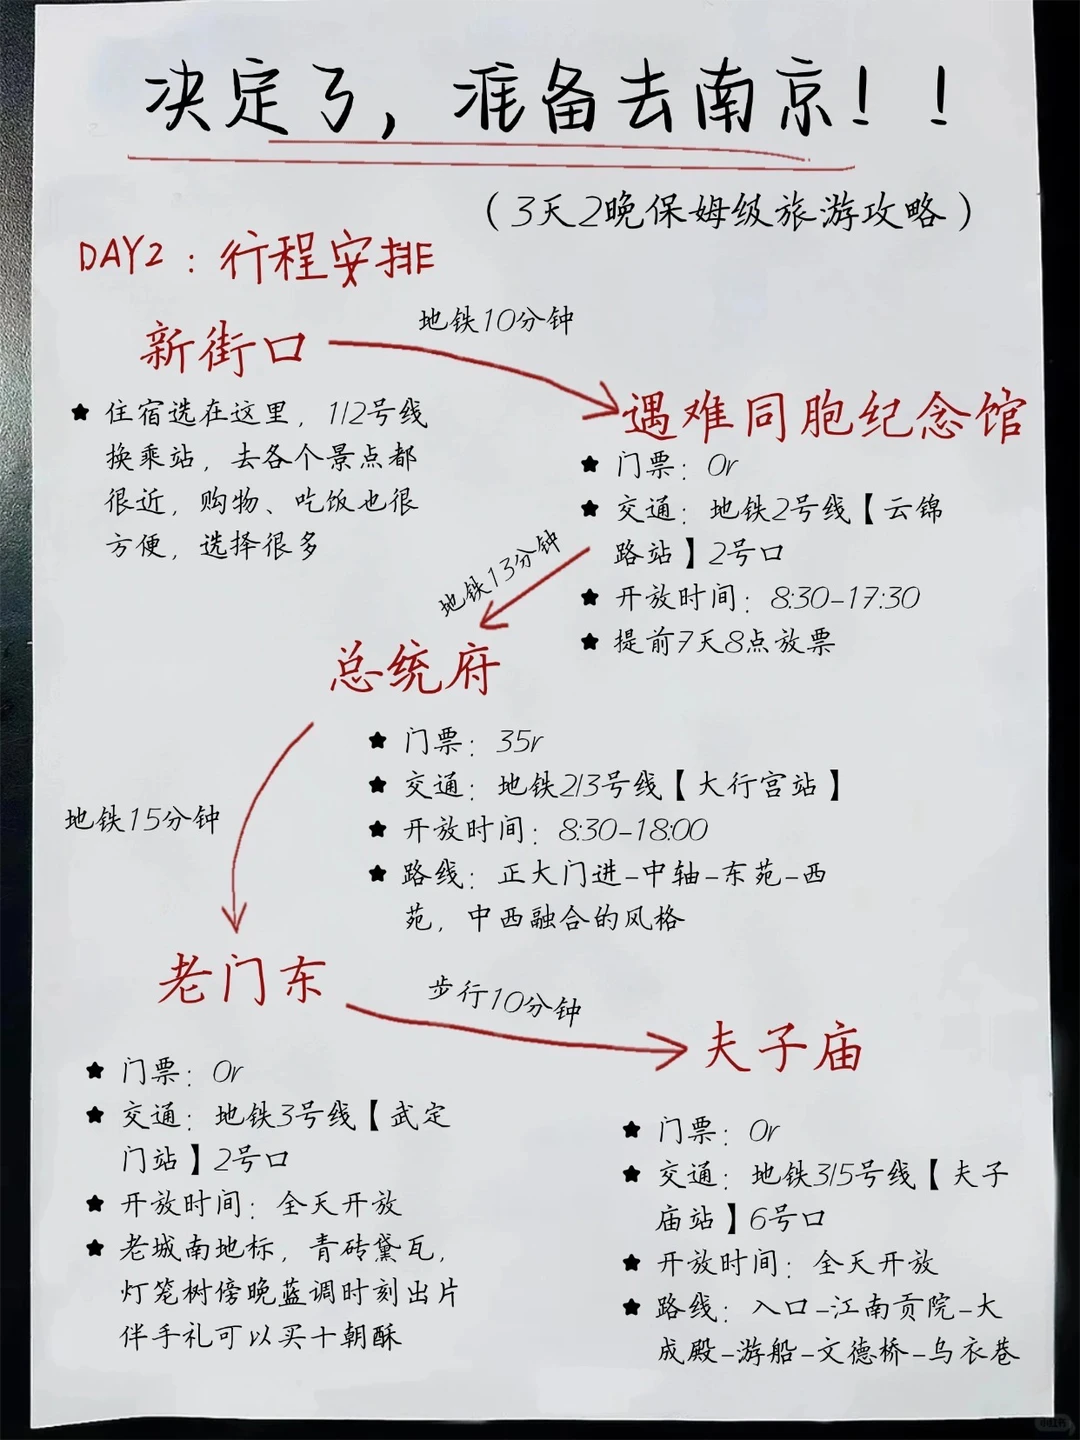 决定了，准备去南京！！
（3天2晚保姆级旅游攻略）
DAY2：行程安排
地铁10分钟
新街口
★ 住宿选在这里，1/2号线
换乘站，去各个景点都
很近，购物、吃饭也很
方便，选择很多
遇难同胞纪念馆
★ 门票：0r
★ 交通：地铁2号线【云锦
路站】2号口
★ 开放时间：8:30-17:30
★ 提前7天8点放票
地铁13分钟
总统府
★ 门票：35r
★ 交通：地铁2/3号线【大行宫站】
★ 开放时间：8:30-18:00
★ 路线：正大门进-中轴-东苑-西
苑，中西融合的风格
地铁15分钟
老门东
步行10分钟
★ 门票：0r
★ 交通：地铁3号线【武定
门站】2号口
★ 开放时间：全天开放
★ 老城南地标，青砖黛瓦，
灯笼树傍晚蓝调时刻出片
伴手礼可以买十朝酥
夫子庙
★ 门票：0r
★ 交通：地铁3/5号线【夫子
庙站】6号口
★ 开放时间：全天开放
★ 路线：入口-江南贡院-大
成殿-游船-文德桥-乌衣巷